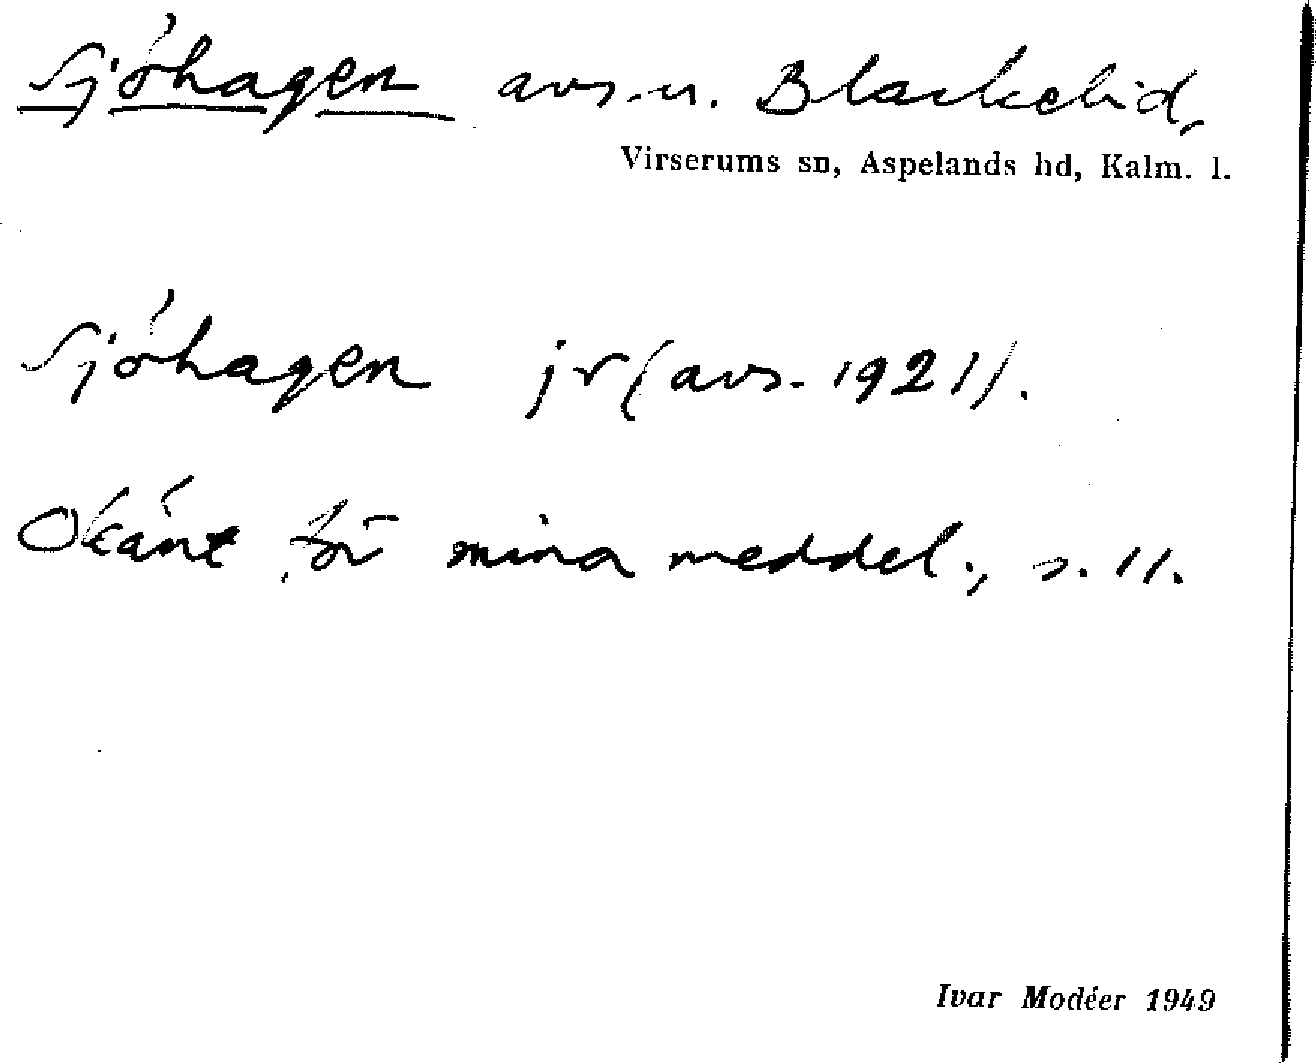 Sjöhagen avs. u. Blackelid,
Virserums sn, Aspelands hd, Kalm. l.
Sjöhagen jr (avs. 1921).
Okänt för mina meddel., s. 11.
Ivar Modéer 1949